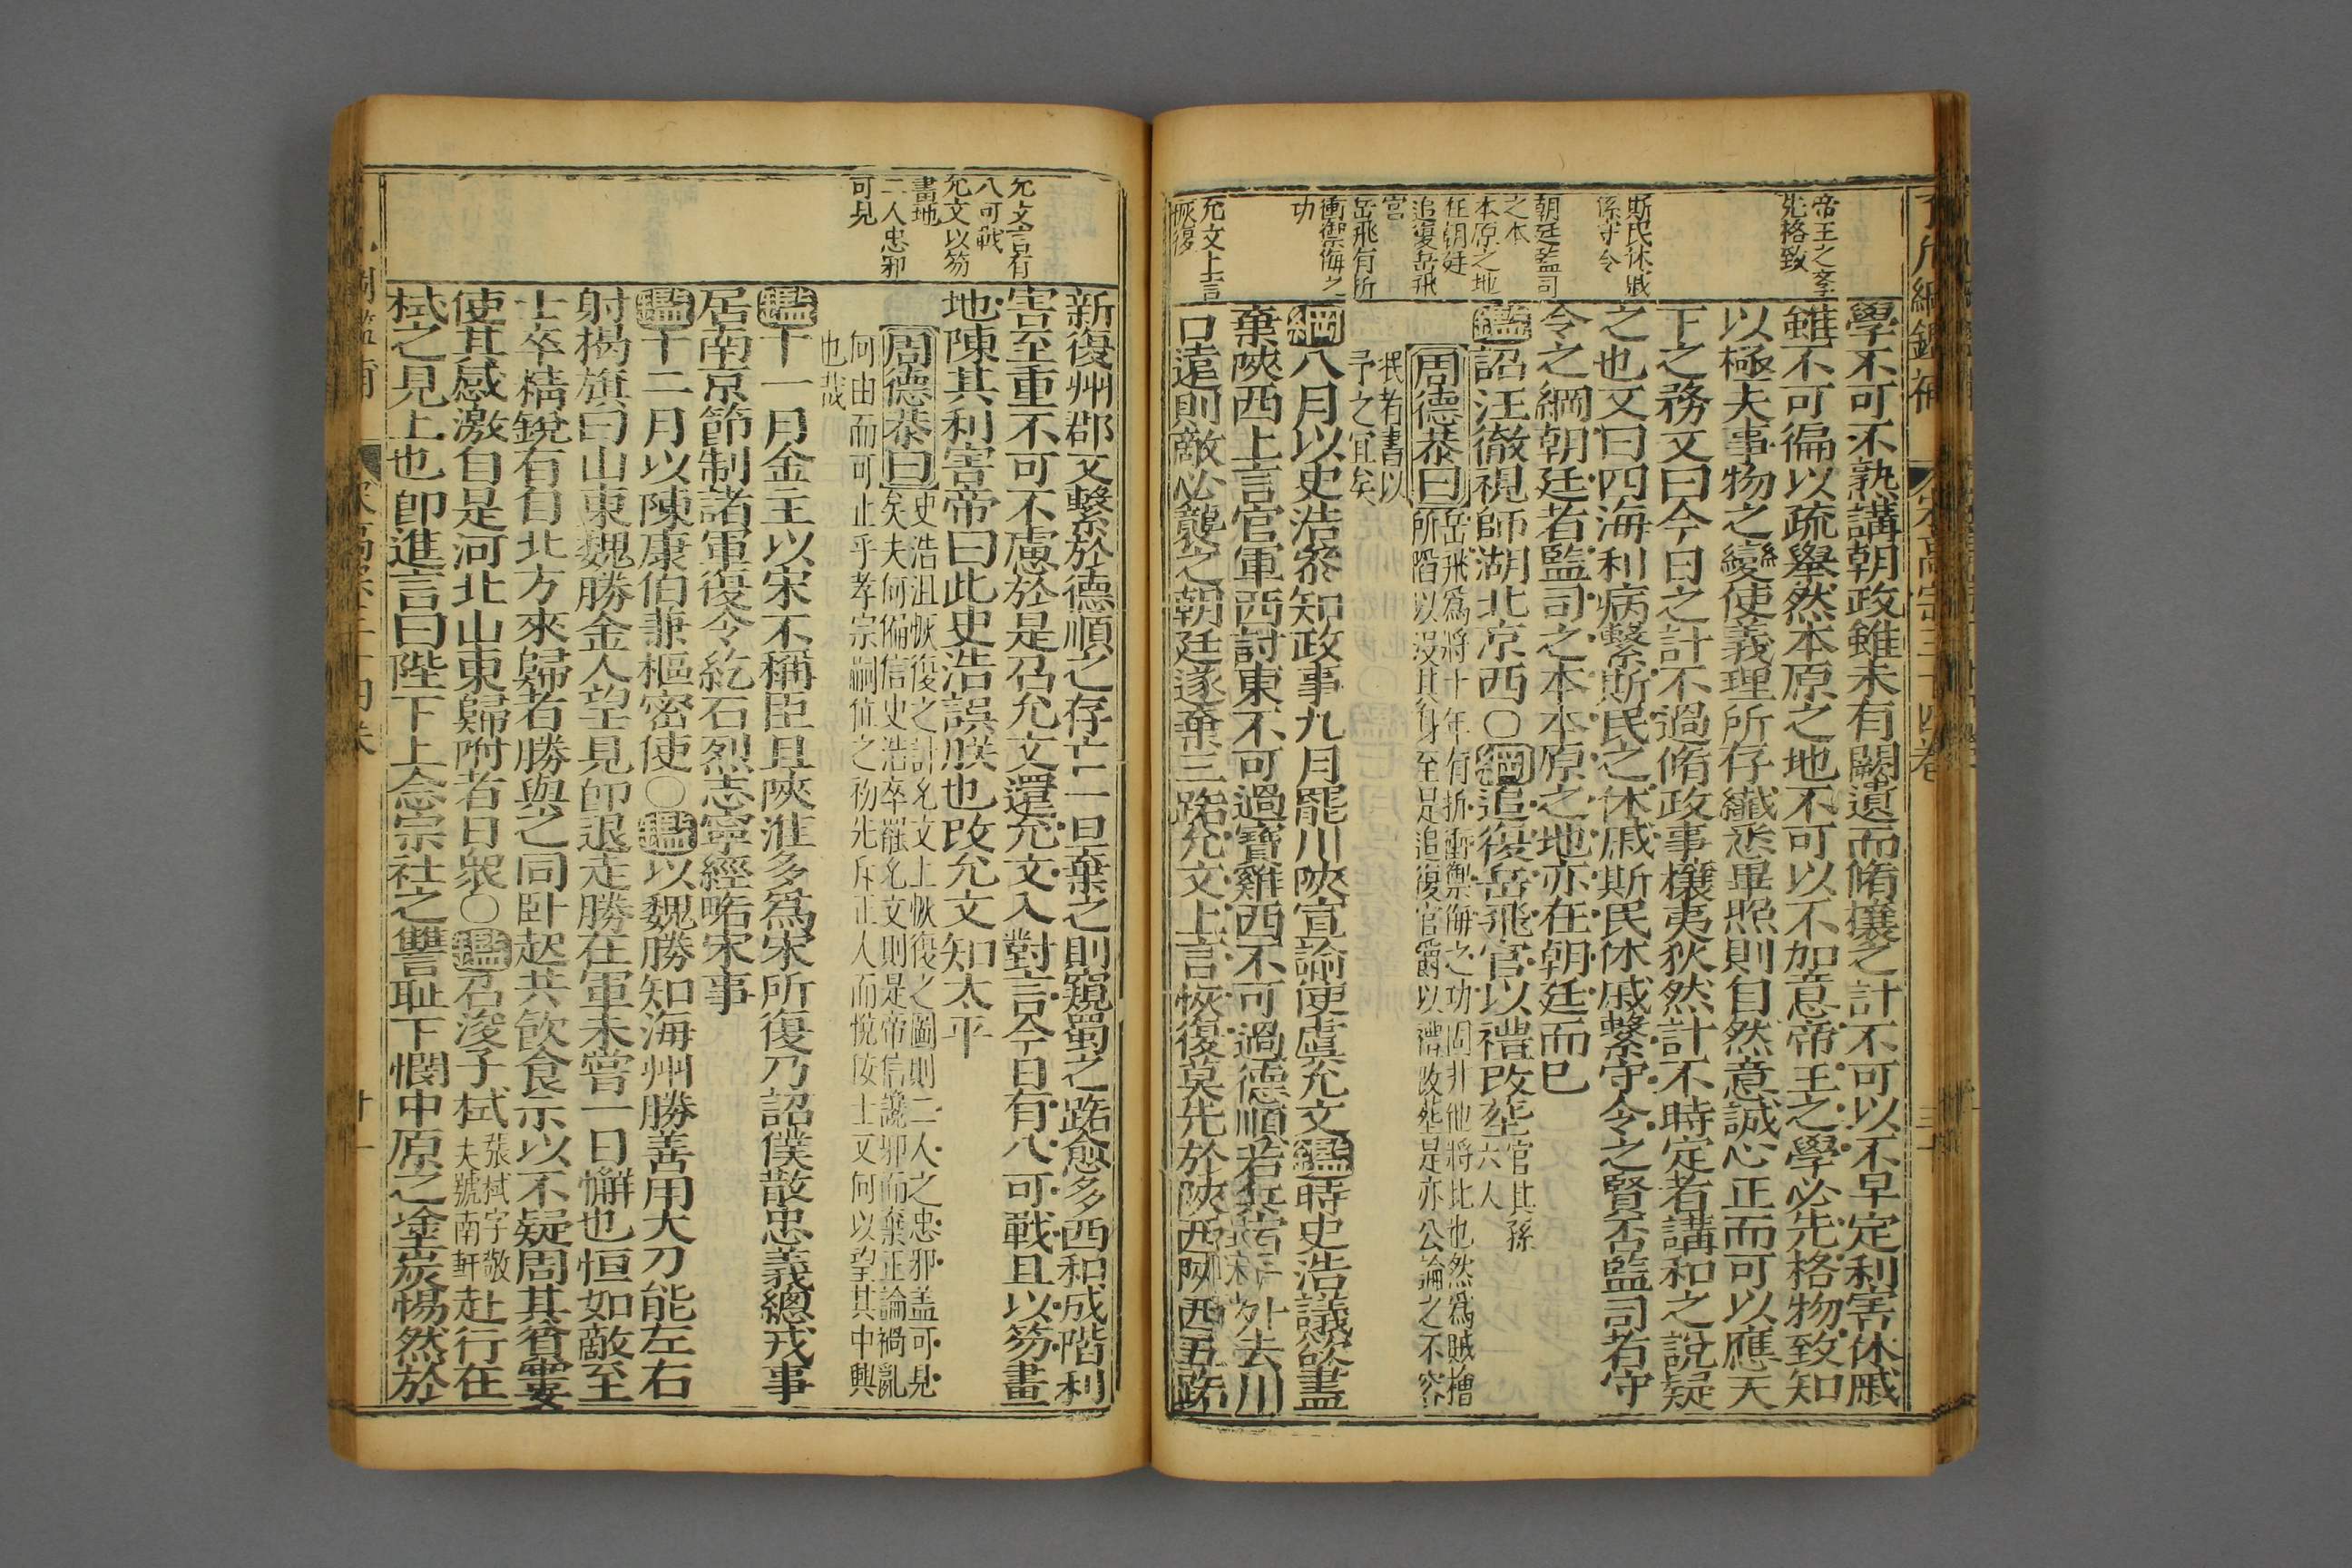 了凡綱鑑補
宋高宗三十四卷
帝王之學
先格致
斯民休戚
係守令
朝廷監司
之本
本原之地
在朝廷
追復岳飛
官
岳飛有折
衝禦侮之
功
允文上言
恢復
學不可不熟講朝政雖未有闕遺而脩攘之計不可以不早定利害休戚
雖不可徧以疏舉然本原之地不可以不加意帝王之學必先格物致知
以極夫事物之變使義理所存纖悉畢照則自然意誠心正而可以應天
下之務又曰今日之計不過脩政事攘夷狄然計不時定者講和之說疑
之也又曰四海利病繫斯民之休戚斯民休戚繫守令之賢否監司者守
令之綱朝廷者監司之本本原之地亦在朝廷而已
鑑詔汪徹視師湖北京西〇綱追復岳飛官以禮改塟官其孫六人
周德恭曰岳飛爲將十年有折衝禦侮之功固非他將比也然爲賊檜
所陷以沒其身至是追復官爵以禮改塟是亦公論之不容
泯者書以
予之宜矣
綱八月以史浩參知政事九月罷川陝宣諭使虞允文鑑時史浩議欲盡
棄陝西上言官軍西討東不可過寶雞西不可過德順若兵宿於外去川
口遠則敵必襲之朝廷遂棄三路允文上言恢復莫先於陝西陝西五路
允文言有
八可戰
允文以笏
畫地
二人忠邪
可見
新復州郡又繫於德順之存亡一旦棄之則窺蜀之路愈多西和成階利
害至重不可不慮於是召允文還允文入對言今日有八可戰且以笏畫
地陳其利害帝曰此史浩誤朕也改允文知太平
周德恭曰史浩沮恢復之計允文上恢復之圖則二人之忠邪盖可見
矣夫何偏信史浩卒罷允文則是帝信讒邪而棄正論禍亂
何由而可止乎孝宗嗣位之初先斥正人而悅佞士又何以望其中興
也哉
鑑十一月金主以宋不稱臣且陝淮多爲宋所復乃詔僕散忠義總戎事
居南京節制諸軍復令紇石烈志寧經畧宋事
鑑十二月以陳康伯兼樞密使〇鑑以魏勝知海州勝善用大刀能左右
射楬旗曰山東魏勝金人望見卽退走勝在軍未嘗一日懈也恒如敵至
士卒精銳有自北方來歸者勝與之同卧起共飲食示以不疑周其貧窶
使其感激自是河北山東歸附者日衆〇鑑召浚子栻張栻字敬夫號南軒赴行在
栻之見上也卽進言曰陛下上念宗社之讐耻下憫中原之塗炭惕然於